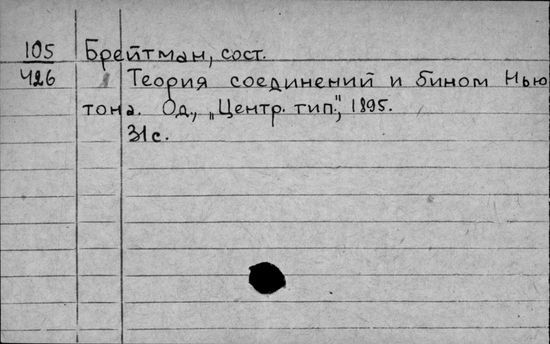 105 Брейтман, сост.
426 Теория соединений и бином Нью
тона. Од., „Центр. тип.", 1895.
31с.